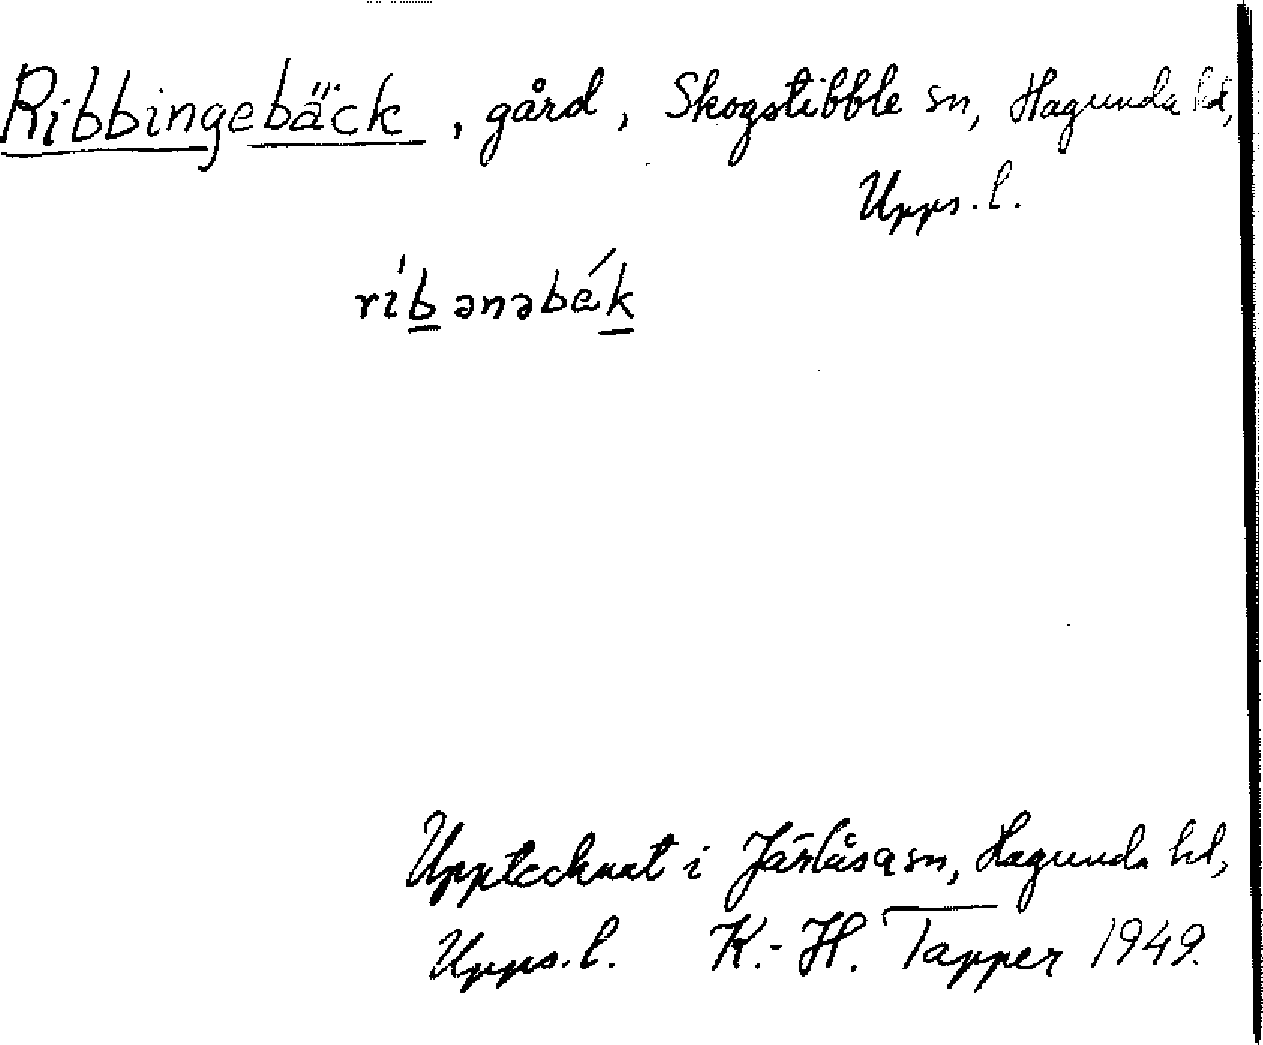 Ribbingebäck, gård, Skogstibble sn, Hagunda hd,
Upps. l.
ríbənəbék
Upptecknat i Järlåsa sn, Hagunda hd,
Upps. l. K.-H. Tapper 1949.